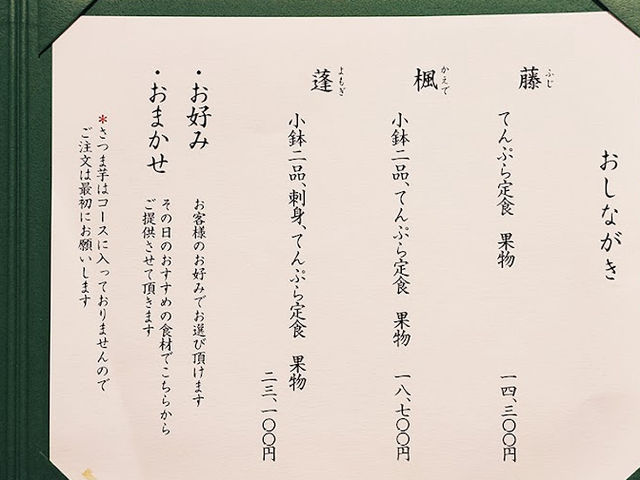 おしながき
藤 ふじ
てんぷら定食 果物
一四、三〇〇円
楓 かえで
小鉢二品、てんぷら定食 果物
一八、七〇〇円
蓬 よもぎ
小鉢二品、刺身、てんぷら定食 果物
二三、一〇〇円
・お好み
お客様のお好みでお選び頂けます
・おまかせ
その日のおすすめの食材でこちらから
ご提供させて頂きます
*さつま芋はコースに入っておりませんので
ご注文は最初にお願いします